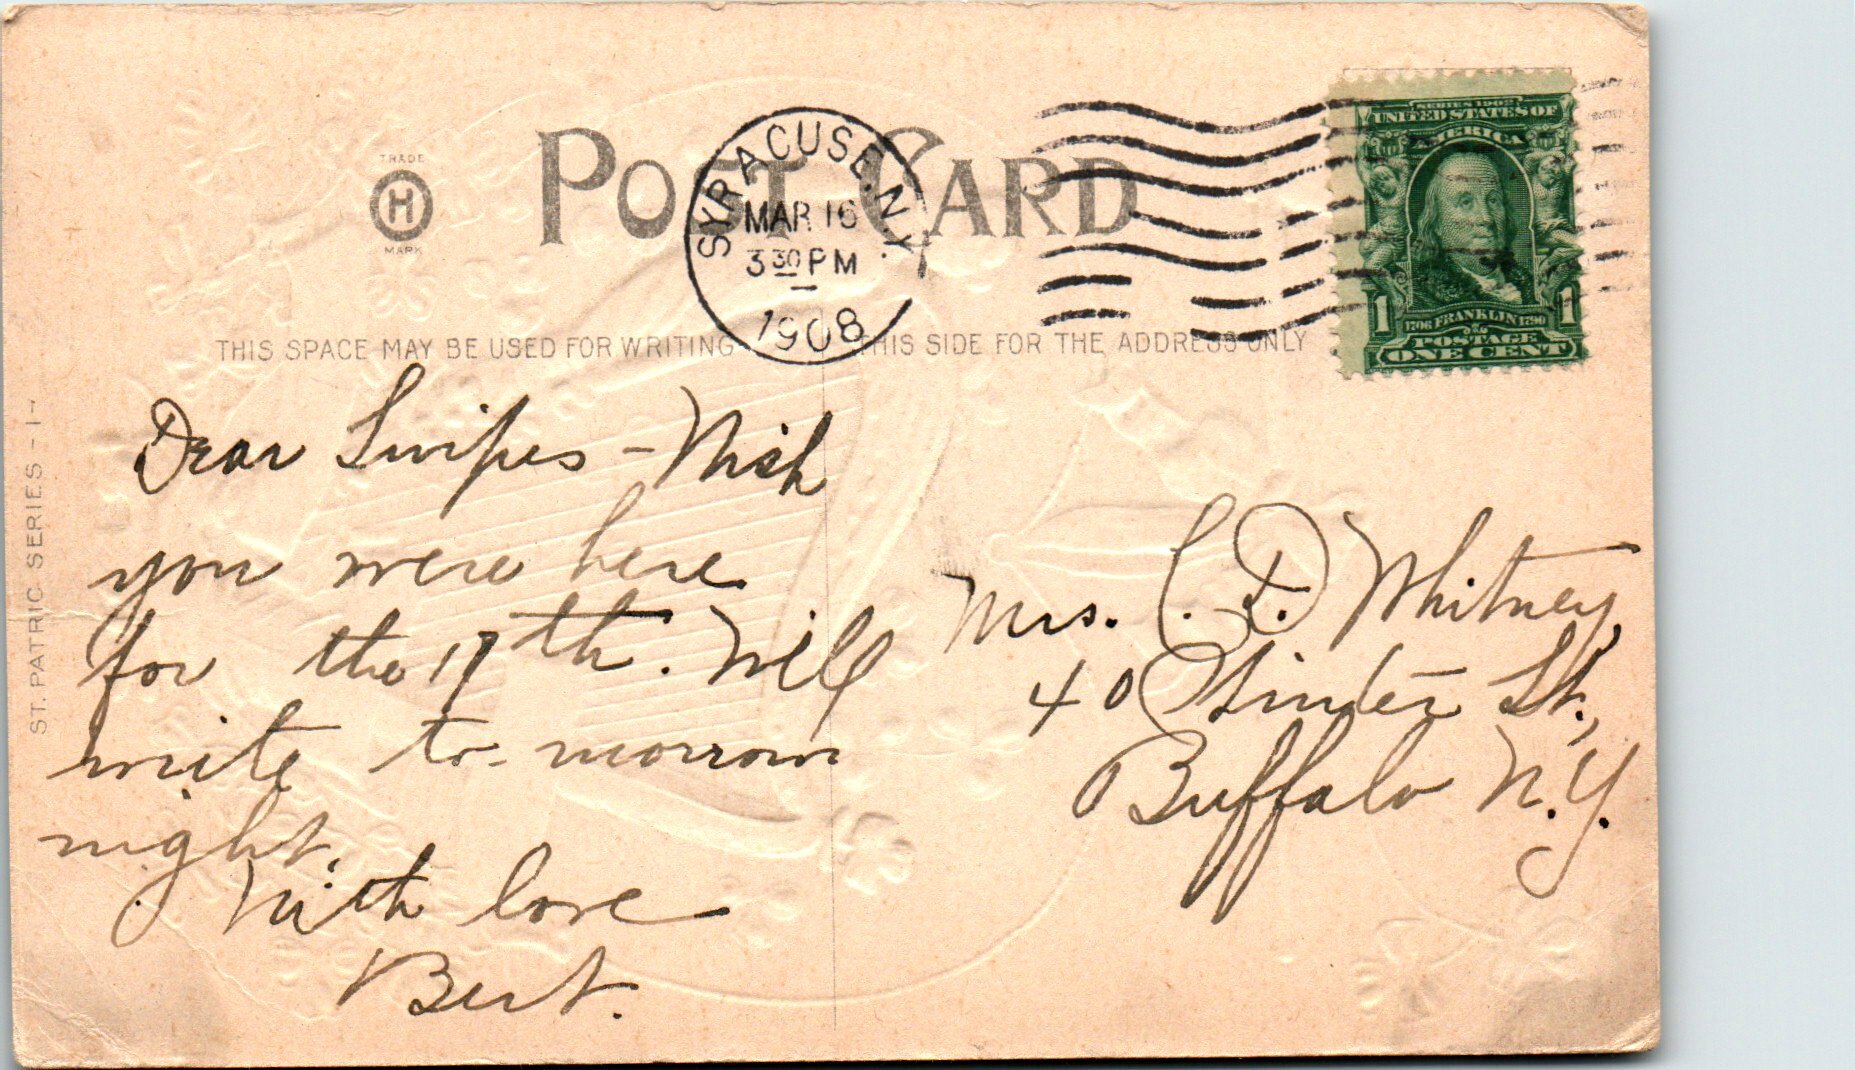 TRADE
H
MARK
POST CARD
SYRACUSE, N.Y.
MAR 16
3 30 PM
1908
SERIES 1902
UNITED STATES OF
AMERICA
1 1
1706 FRANKLIN 1790
POSTAGE
ONE CENT
THIS SPACE MAY BE USED FOR WRITING
THIS SIDE FOR THE ADDRESS ONLY
ST. PATRIC SERIES - 1 -
Dear Swipes - Wish
you were here
for the 17th. Will
write to-morrow
night.
With love
Bert.
Mrs. C. D. Whitney,
40 St.,
Buffalo N.Y.